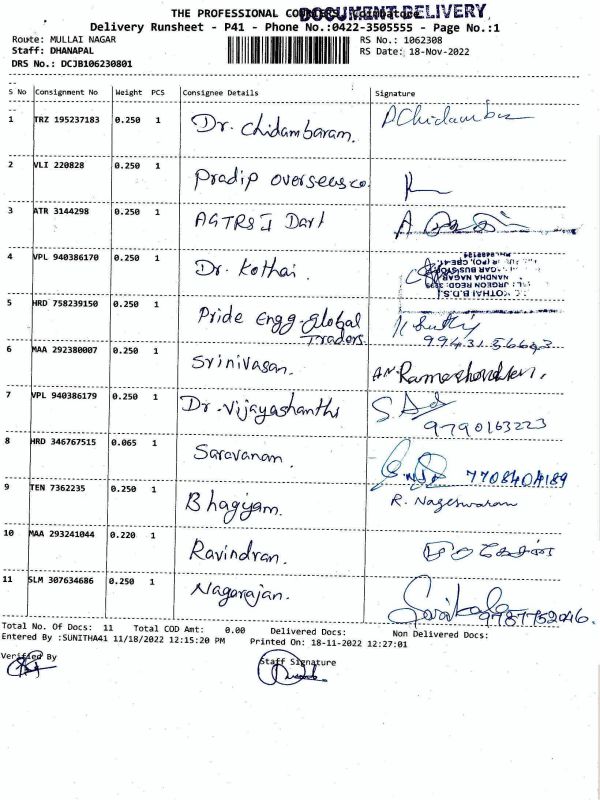 THE PROFESSIONAL
DOCUMENT DELIVERY
Delivery Runsheet - P41 - Phone No.:0422-3505555 - Page No.:1
Route: MULLAI NAGAR
RS No.: 1062308
Staff: DHANAPAL
RS Date: 18-Nov-2022
DRS No.: DCJB106230801
S No Consignment No Weight PCS Consignee Details Signature
1 TRZ 195237183 0.250 1 Dr. Chidambaram. P Chidambara
2 VLI 220828 0.250 1 Pradip overseas co.
3 ATR 3144298 0.250 1 Dart
4 VPL 940386170 0.250 1 Dr. Kothai.
KOTHAI B.D.S.
NANDHA NAGAR
5 HRD 758239150 0.250 1 Pride Engg-Global
Traders.
99431 56693
6 MAA 292380007 0.250 1 Srinivasan.
7 VPL 940386179 0.250 1 Dr. Vijayashanthi
9790163223
8 HRD 346767515 0.065 1 Saravanam. 7708404189
9 TEN 7362235 0.250 1 Bhagiyam. R. Nageswaran
10 MAA 293241044 0.220 1 Ravindran.
11 SLM 307634686 0.250 1 Nagarajan.
9787752046.
Total No. Of Docs: 11 Total COD Amt: 0.00 Delivered Docs: Non Delivered Docs:
Entered By :SUNITHA41 11/18/2022 12:15:20 PM Printed On: 18-11-2022 12:27:01
Verified By
Staff Signature